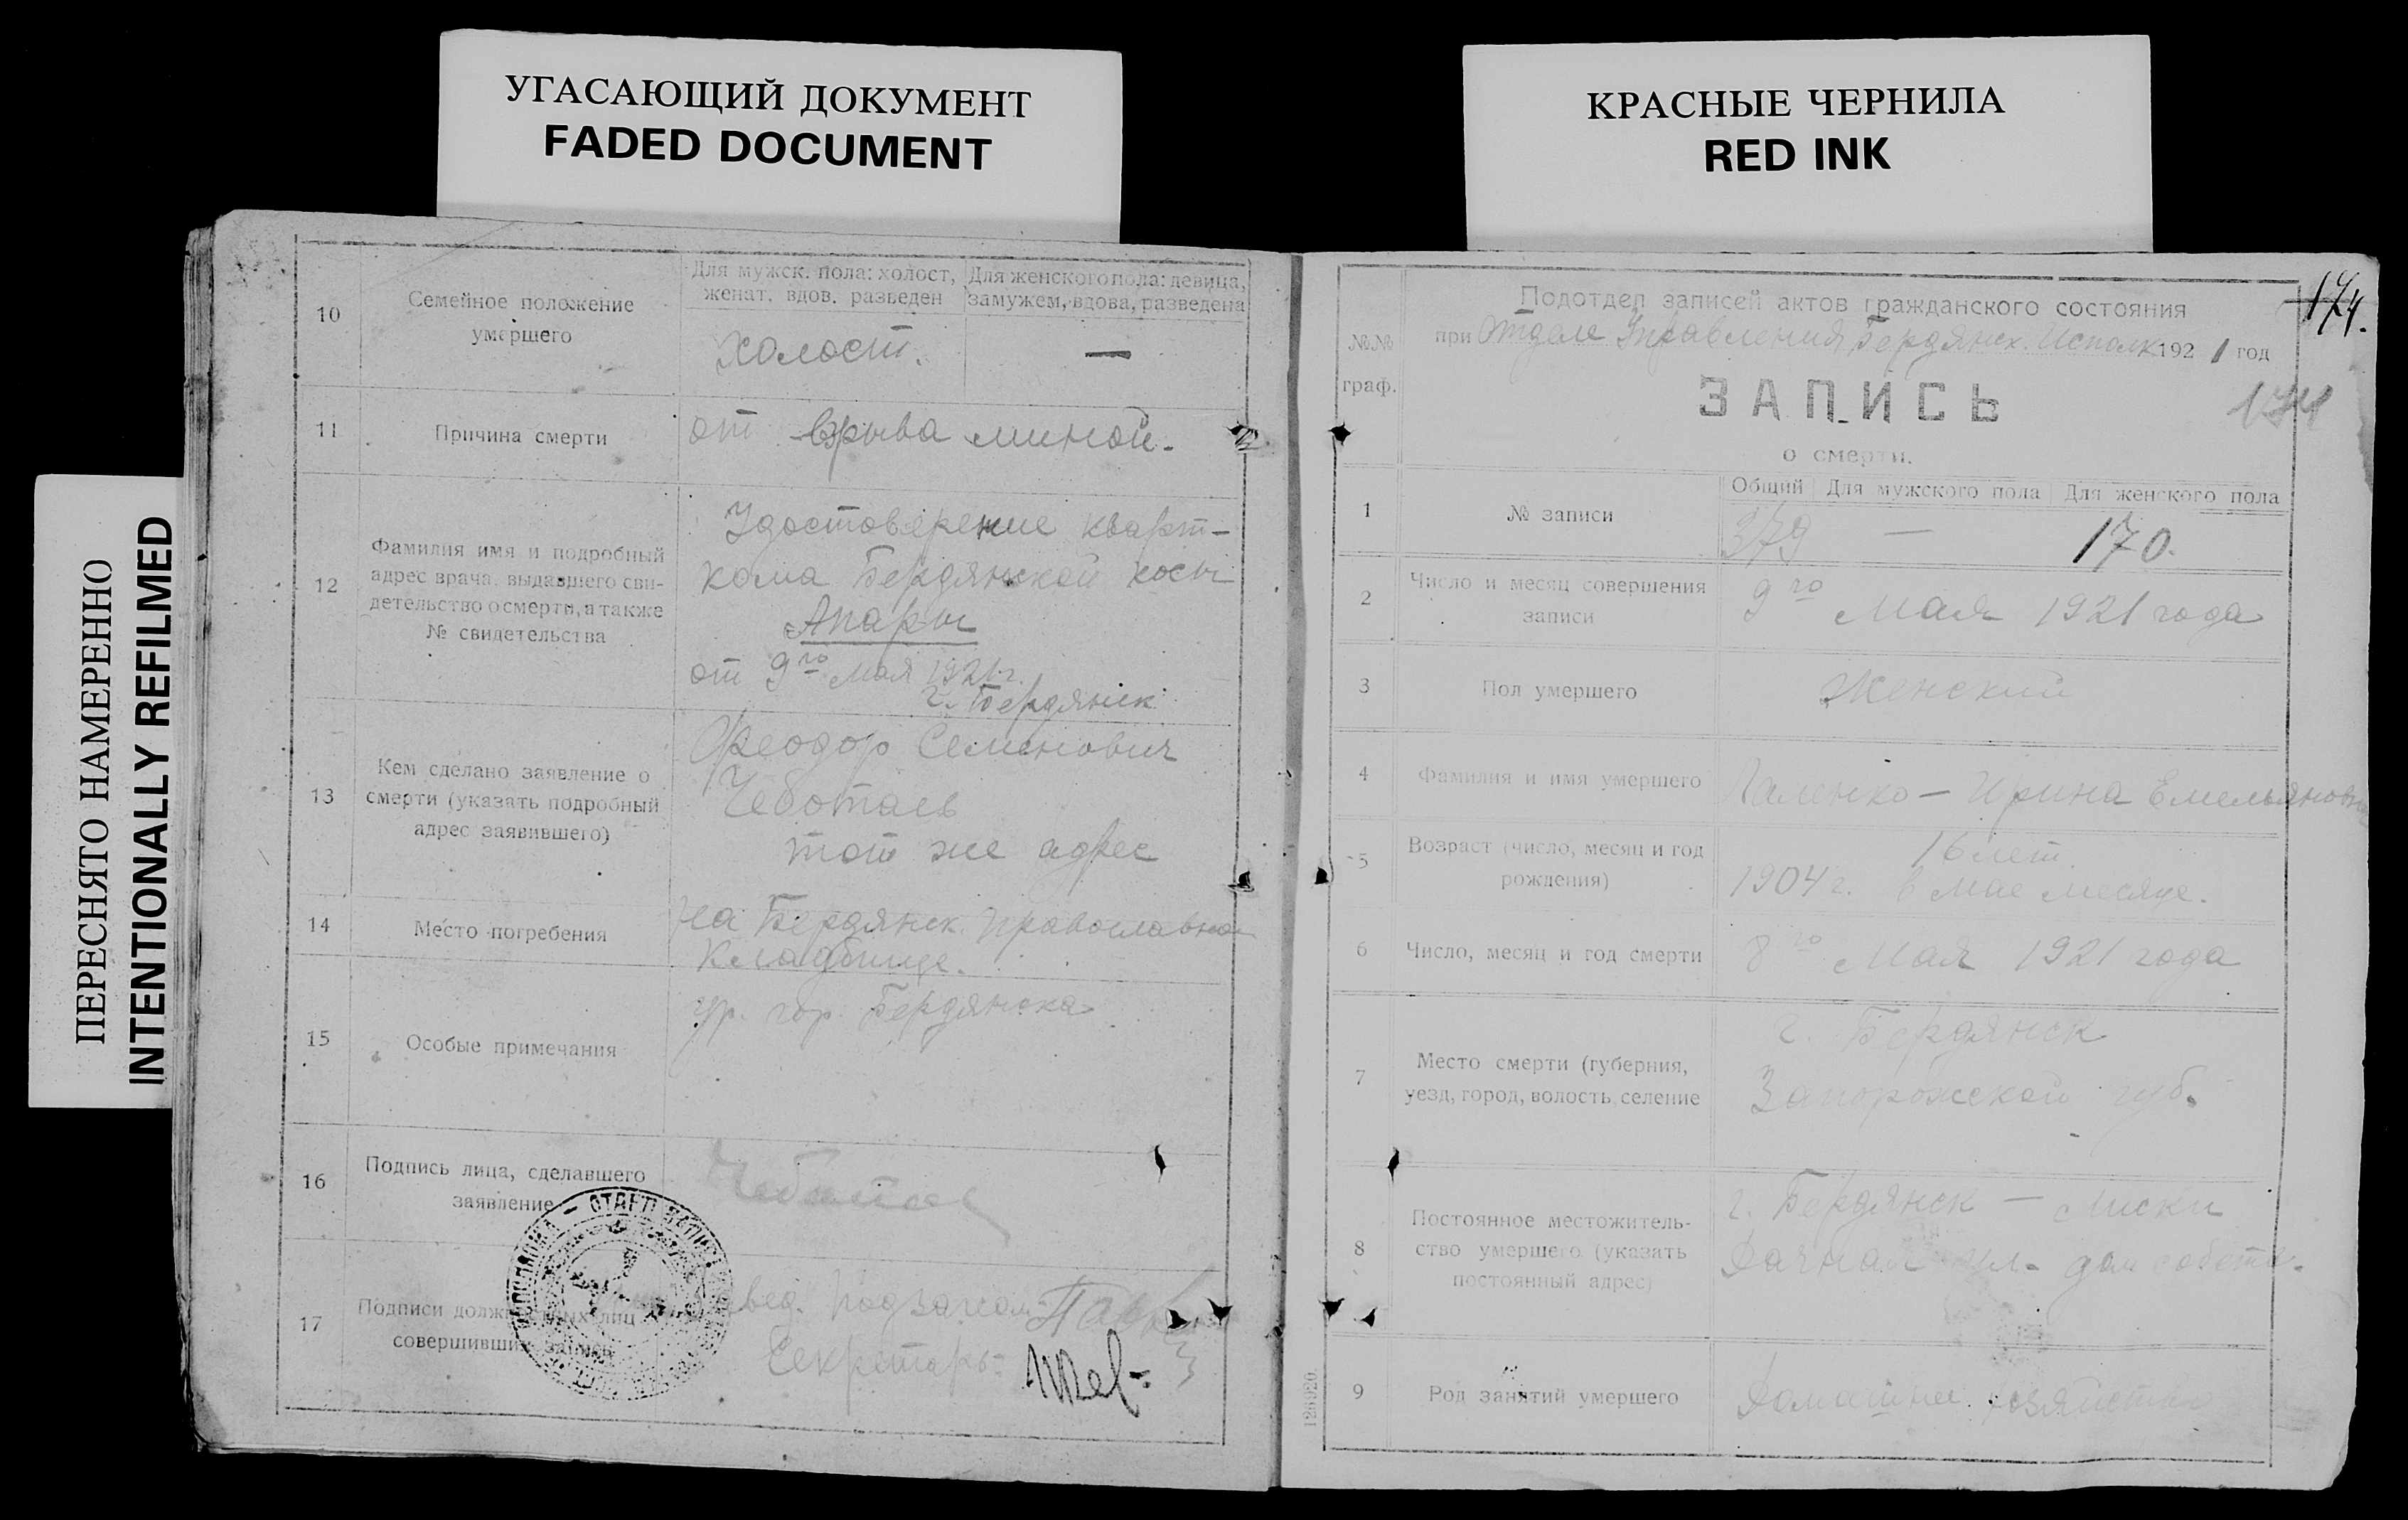 УГАСАЮЩИЙ ДОКУМЕНТ
FADED DOCUMENT
КРАСНЫЕ ЧЕРНИЛА
RED INK
ПЕРЕСНЯТО НАМЕРЕННО
INTENTIONALLY REFILMED
10
Семейное положение
умершего
Для мужск. пола: холост,
женат, вдов, разведен
Для женского пола: девица,
замужем, вдова, разведена
Холост.
—
11
Причина смерти
от взрыва миной.
12
Фамилия имя и подробный
адрес врача, выдавшего сви-
детельство о смерти, а также
№ свидетельства
Удостоверение кварт-
кома Бердянской косы
Апары
от 9го мая 1921 г.
г. Бердянск
13
Кем сделано заявление о
смерти (указать подробный
адрес заявившего)
Феодор Семенович
Чеботаев
тот же адрес
14
Место погребения
на Бердянск. православном
кладбище.
15
Особые примечания
гр. гор. Бердянска
16
Подпись лица, сделавшего
заявление
Чеботаев
17
Подписи должностных лиц
совершивших запись
Завед. подзагсом
Секретарь:
174.
№№
граф.
Подотдел записей актов гражданского состояния
при Отделе Управления Бердянск. Исполк 1921 год
ЗАПИСЬ
174
о смерти.
1
№ записи
Общий
Для мужского пола
Для женского пола
379
—
170.
2
Число и месяц совершения
записи
9го Мая 1921 года
3
Пол умершего
Женский
4
Фамилия и имя умершего
Галенко — Ирина Емельяновна
5
Возраст (число, месяц и год
рождения)
16 лет.
1904 г. в мае месяце.
6
Число, месяц и год смерти
8го Мая 1921 года
7
Место смерти (губерния,
уезд, город, волость, селение
г. Бердянск
Запорожской губ.
8
Постоянное местожитель-
ство умершего (указать
постоянный адрес)
г. Бердянск — Лиски
Дачная ул. дом собств.
9
Род занятий умершего
Домашнее хозяйство